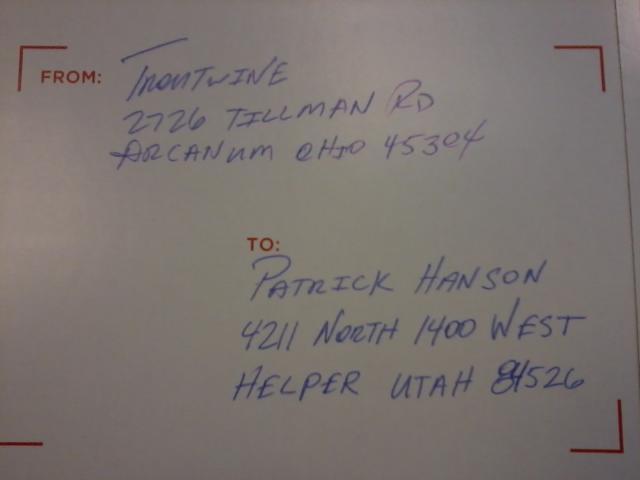 FROM: TROUTWINE
2726 TILLMAN RD
ARCANUM OHIO 45304
TO:
PATRICK HANSON
4211 NORTH 1400 WEST
HELPER UTAH 84526